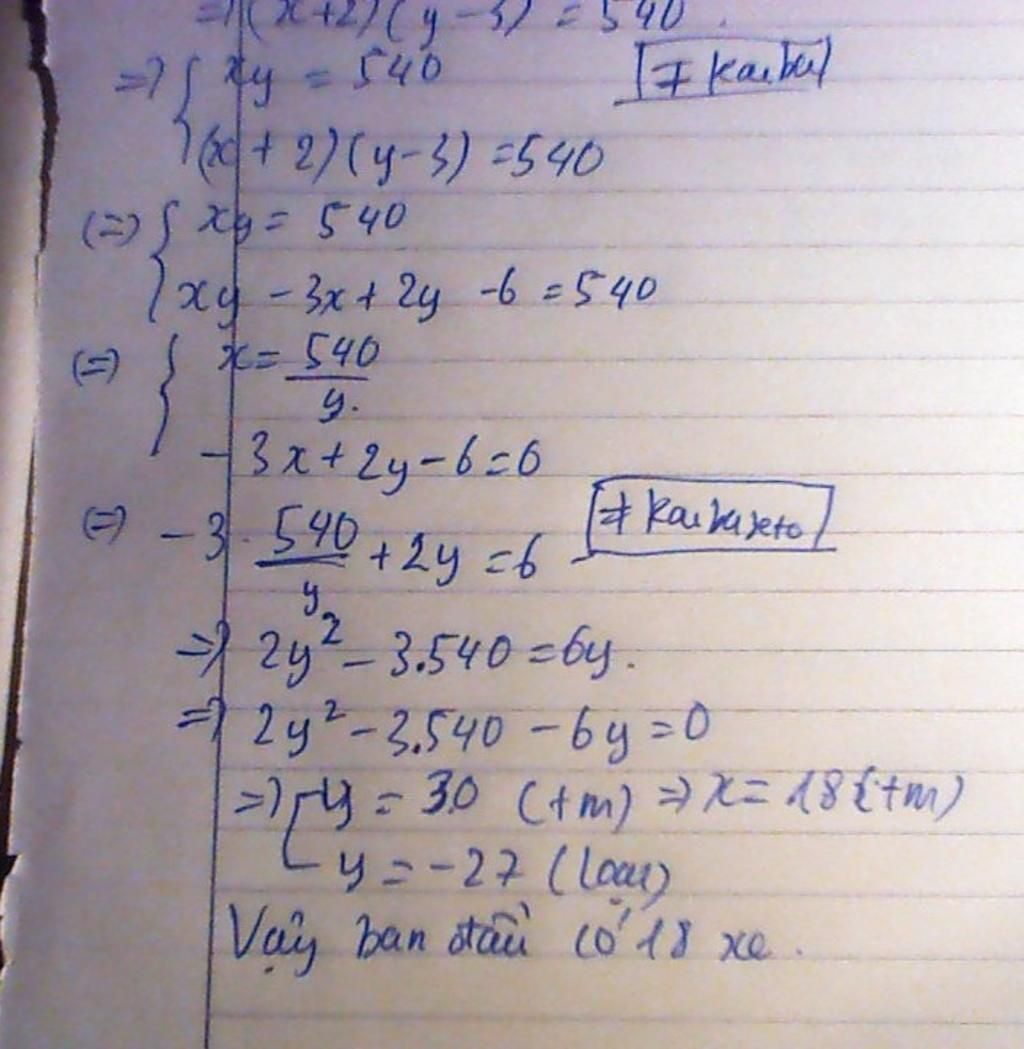 => (x+2)(y-3) = 540.
=> { xy = 540
≠ Kaibu
(x + 2)(y-3) = 540
(=) { xy = 540
xy - 3x + 2y - 6 = 540
(=) { x = 540/y.
- 3x + 2y - 6 = 0
(=) - 3. 540/y + 2y = 6
≠ Kaibuxeto
=> 2y² - 3.540 = 6y.
=> 2y² - 3.540 - 6y = 0
=> [ y = 30 (tm) => x = 18 (tm)
y = -27 (loại)
Vậy ban đầu có 18 xe.